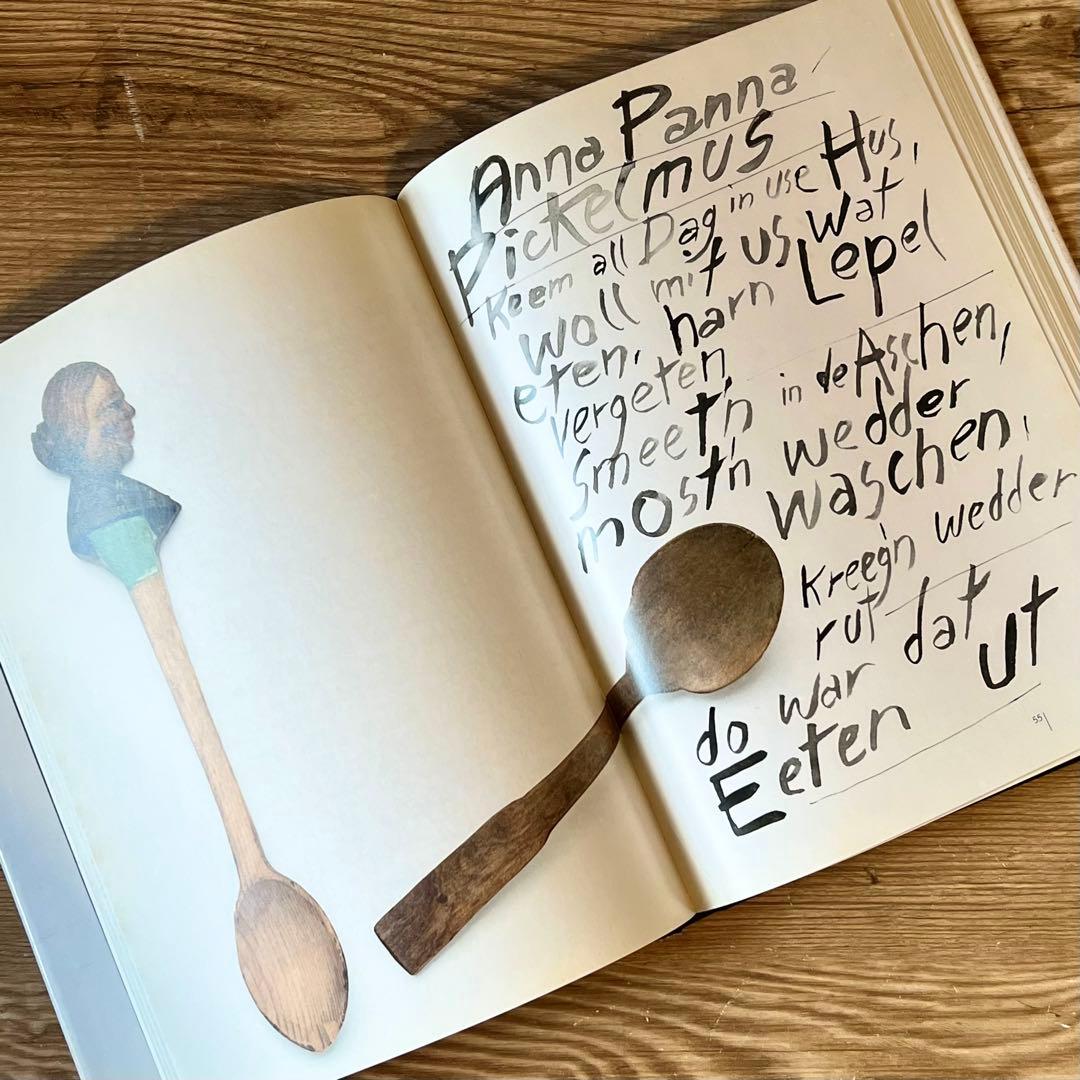 Anna Panna
Pickelmus
Keem all Dag in use Hus,
woll mit us wat
eten, harn Lepel
vergeten,
smeet'n in de Aschen,
most'n wedder
waschen,
Kreeg'n wedder
rut dat
do war ut
Eeten
55